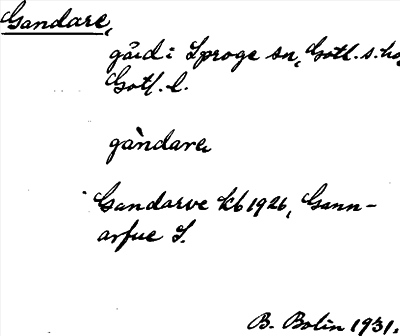 Gandare,
gård i Sproge sn, Gotl. s. hd,
Gotl. l.
gàndarɐ
Gandarve kb 1926, Gann-
arfue S.
B. Bolin 1931.